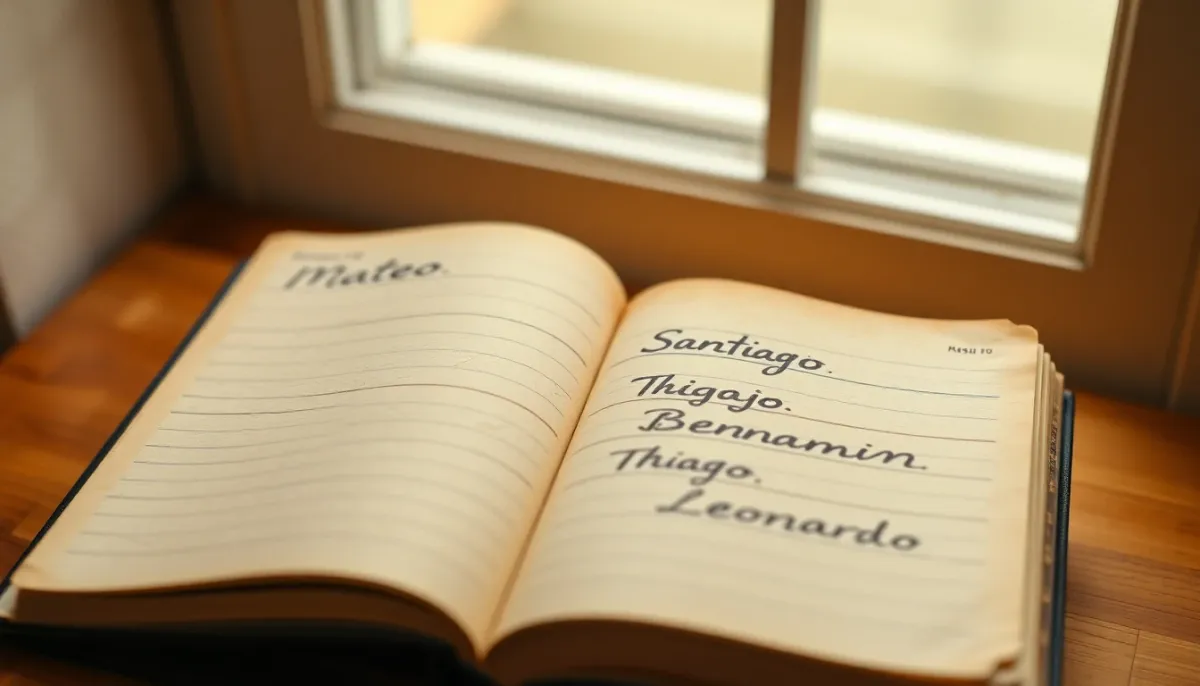 Mateo.
Santiago.
Thigajo.
Bennamin.
Thiago.
Leonardo